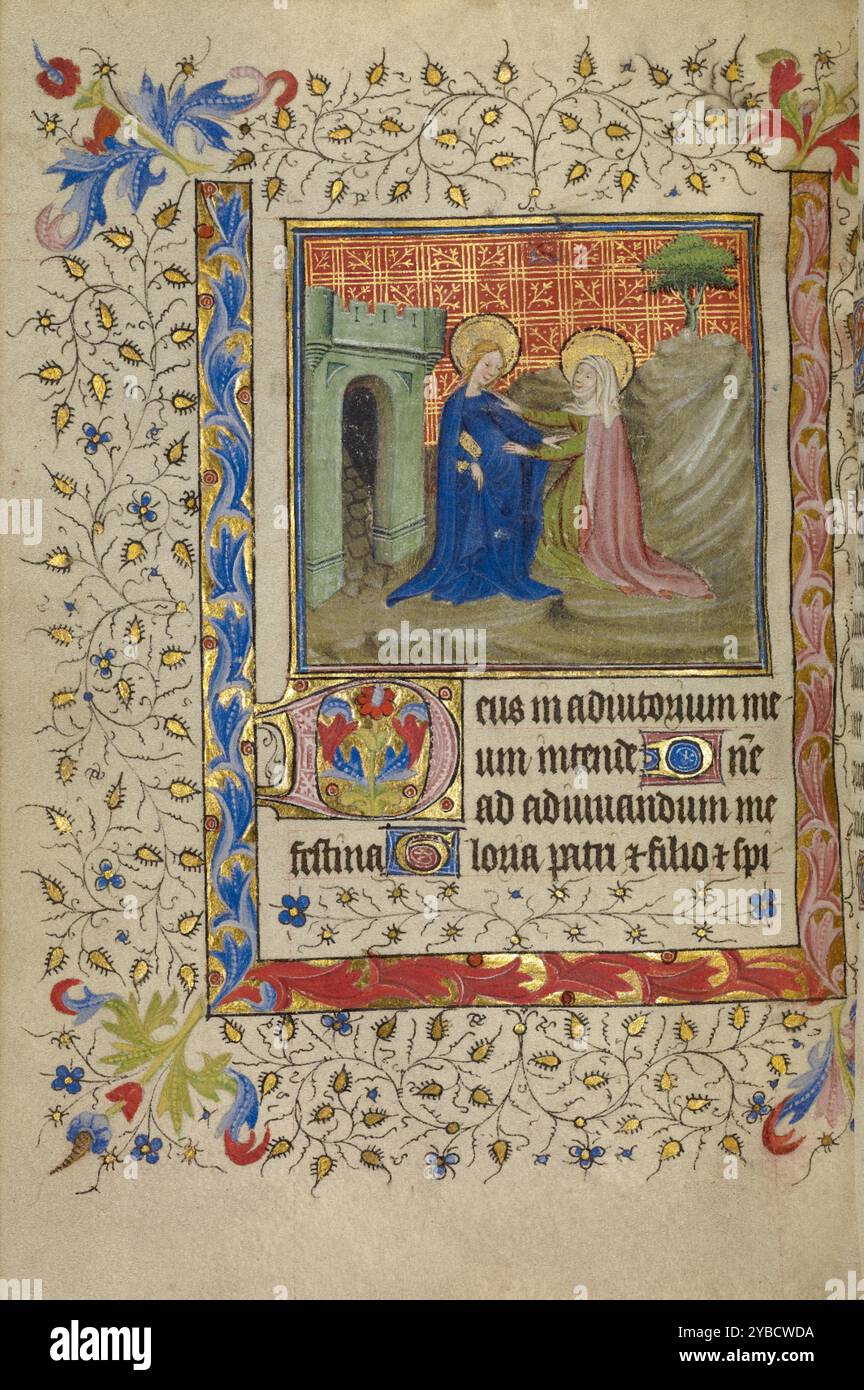 Deus in adiutorium me
um intende Dn̄e
ad adiuuandum me
festina Gloria patri ⁊ filio ⁊ spi
alamy
alamy
Image ID: 2YBCWDA
www.alamy.com